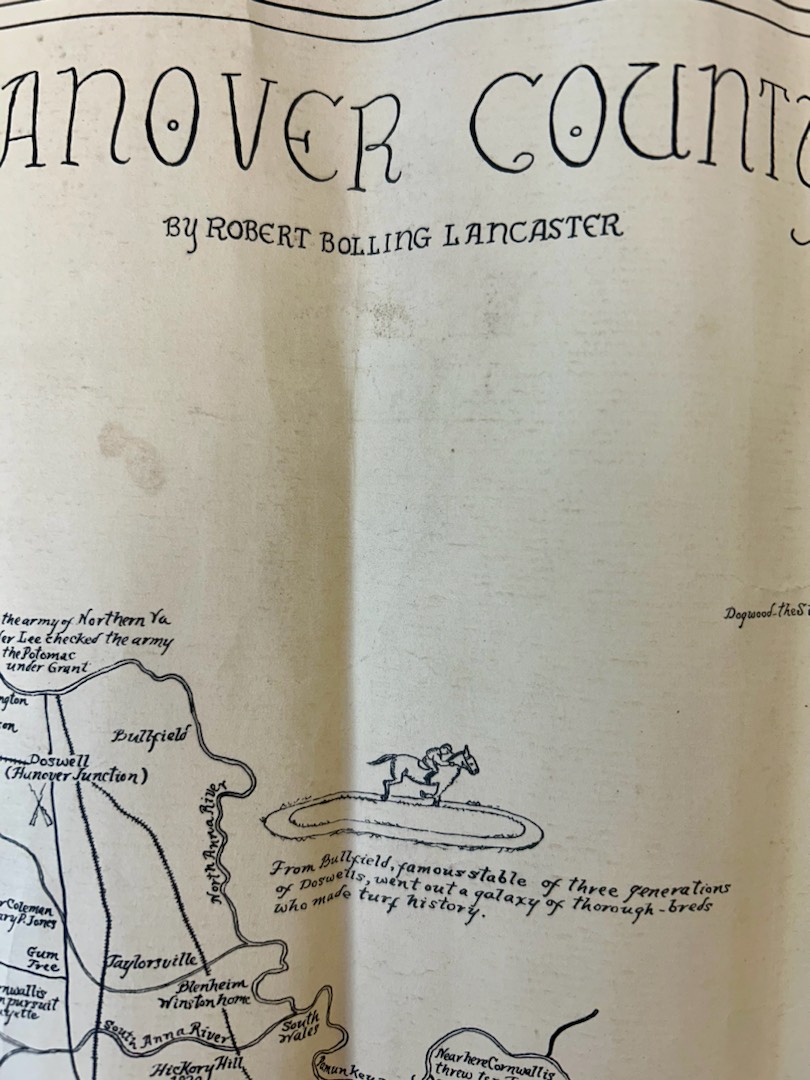 ANOVER COUNTY
BY ROBERT BOLLING LANCASTER
Dogwood-the
the army of Northern Va
er Lee checked the army
the Potomac
under Grant
ngton
on
Bullfield
Doswell
(Hanover Junction)
North Anna River
From Bullfield, famous stable of three generations
of Doswells, went out a galaxy of thorough-breds
who made turf history.
Coleman
ry P. Jones
Gum
Tree
Taylorsville
Blenheim
Winston home
nwallis
n pursuit
yette
South Anna River
South
Wales
Hickory Hill
Near here Cornwallis
threw